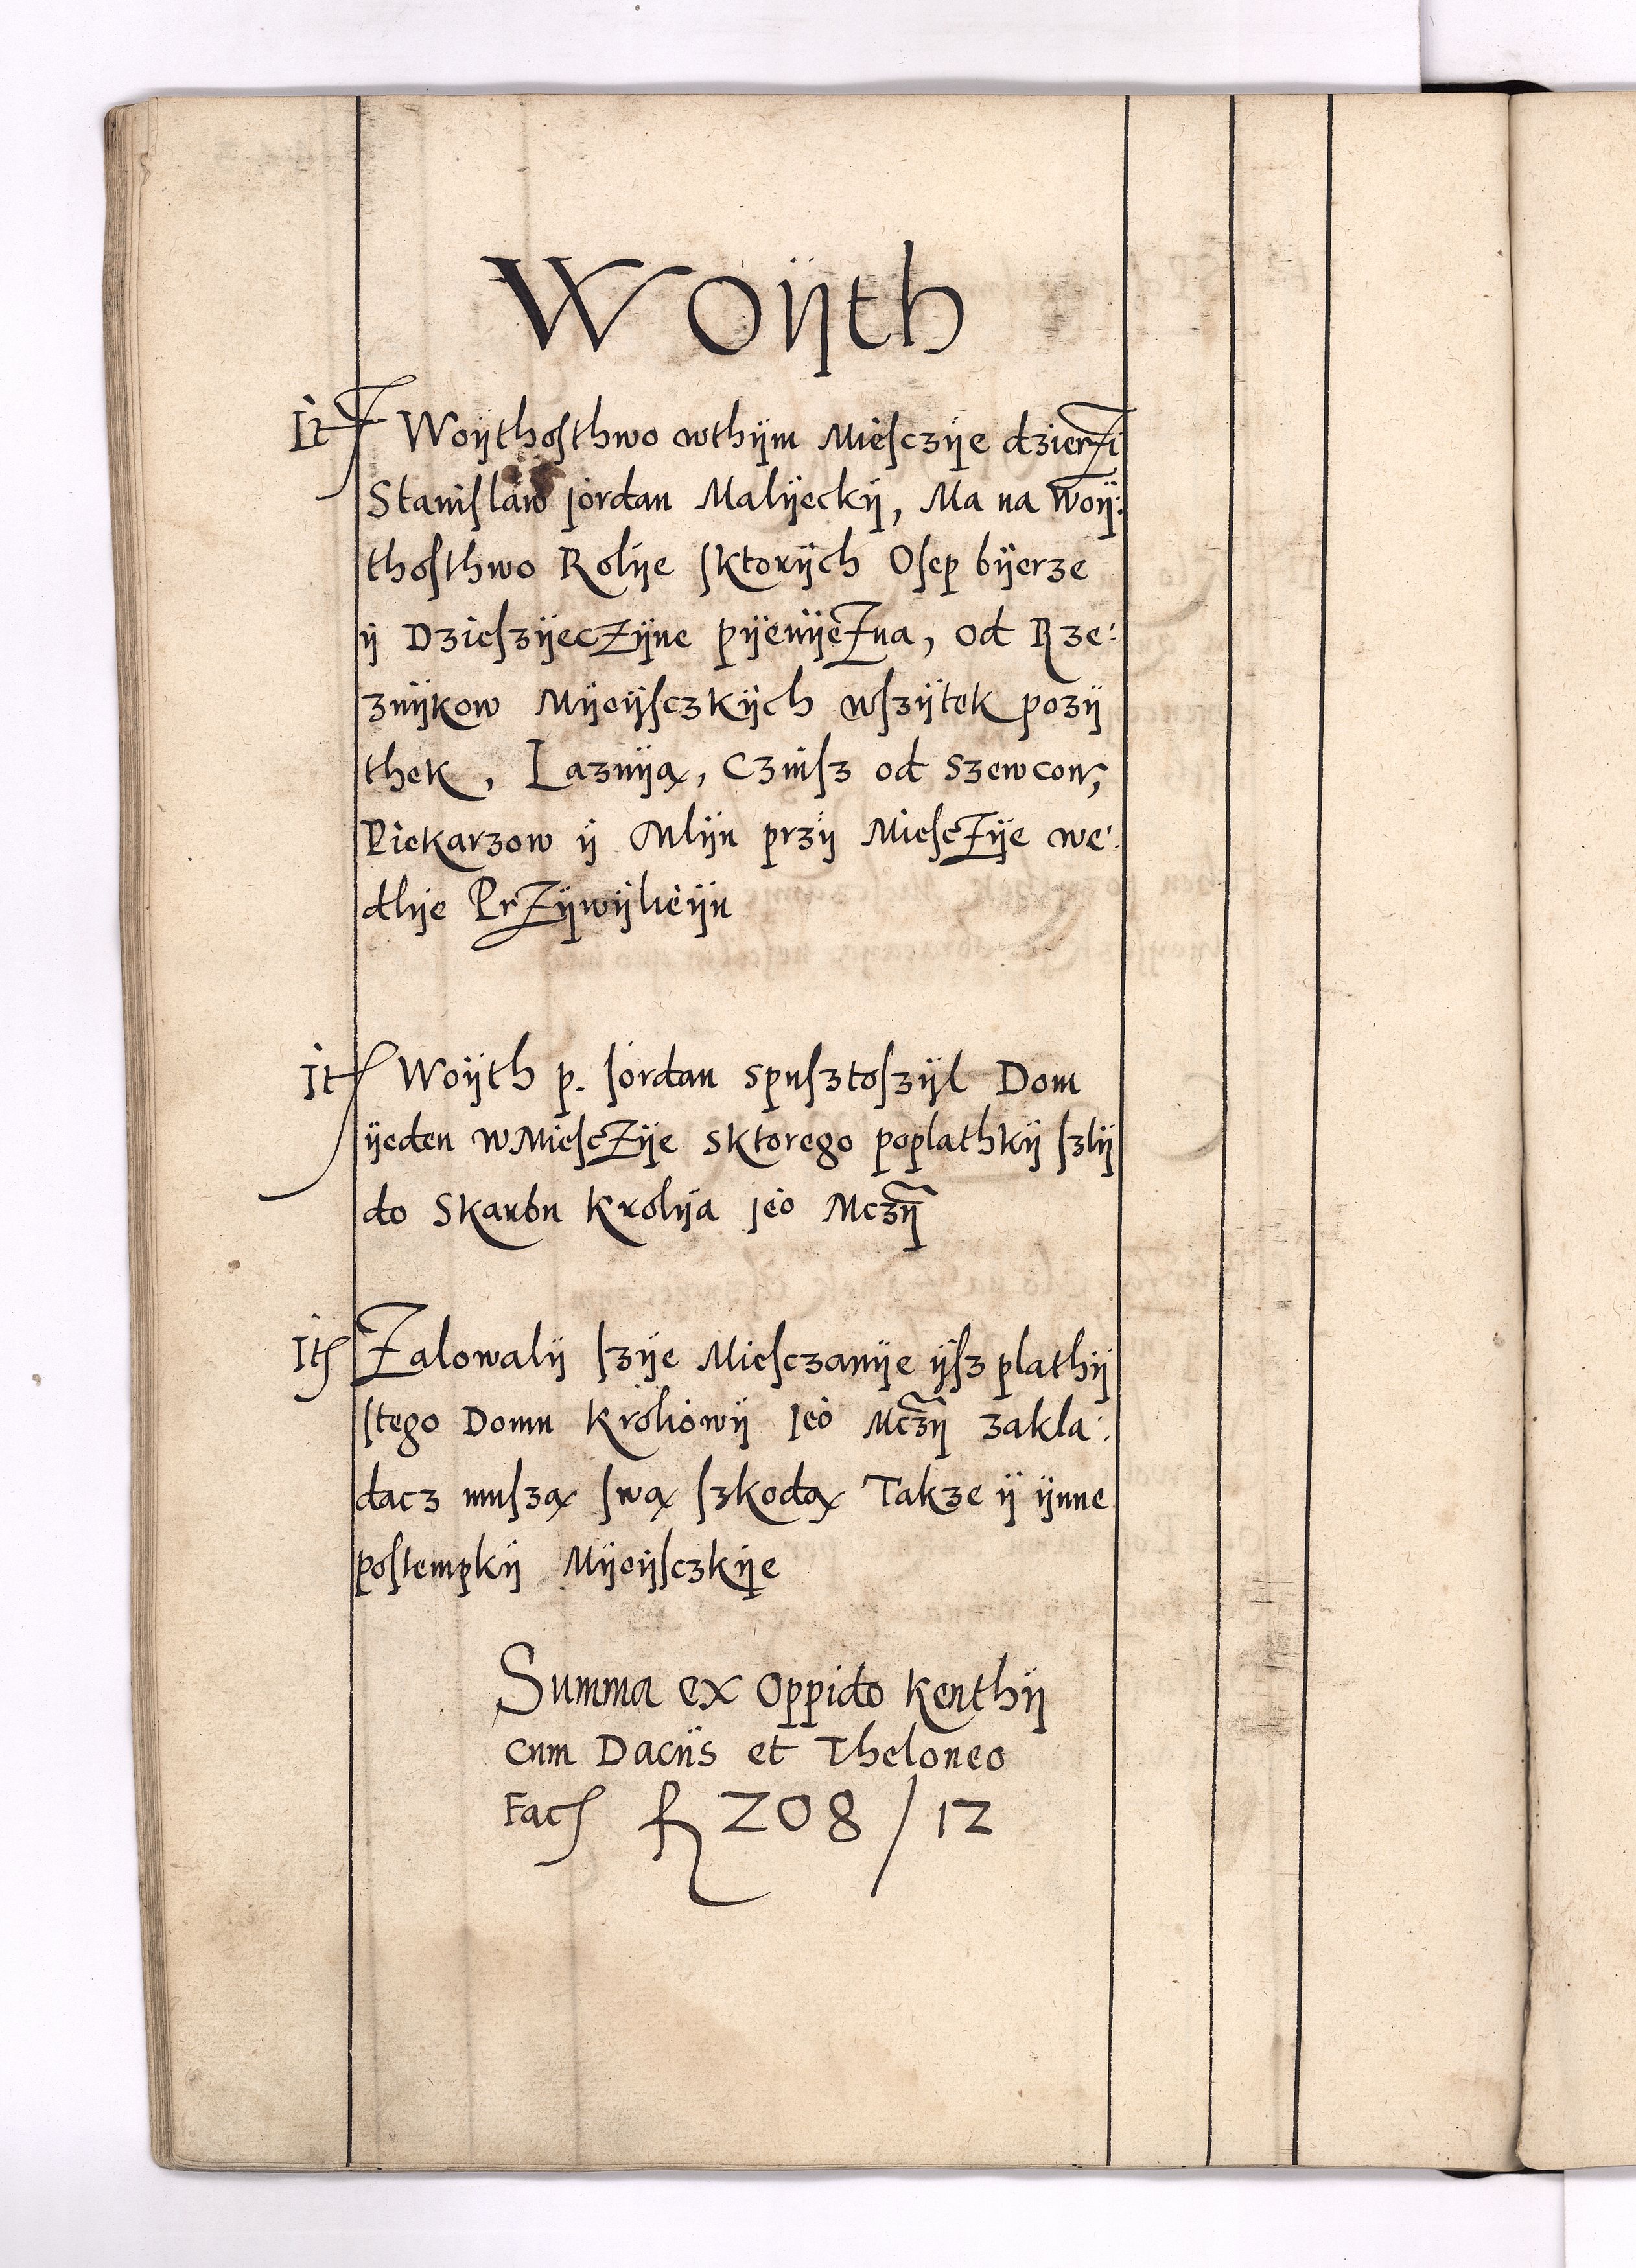 Woÿth
It Woÿthoſthwo wthÿm Mieſczÿe dzierƶi
Staniſlaw Jordan Malÿeckÿ, Ma na Woÿ:
thoſthwo Rolÿe ſktorÿch Oſep bÿerze
ÿ Dzieſzÿeczÿne pÿenÿeƶna, od Rze:
znÿkow Mÿeÿſczkÿch wſzÿtek pozÿ
thek, Laznÿą, Czinſz od Szewcow,
Piekarzow ÿ Mlÿn przÿ Mieſcƶÿe we:
dlÿe Prƶÿwÿlieÿn
It Woÿth p. Jordan spuſztoſzÿl Dom
ÿeden w Mieſcƶÿe sktorego poplathkÿ ſzlÿ
do Skarbu Krolÿa Jeo Mczÿ
It Ƶalowalÿ ſzÿe Mieſczanÿe ÿſz plathÿ
ſtego Domu Kroliowÿ Jeo Mczÿ zakla:
dacz muſzą ſwą ſzkodą Takze ÿ ÿnne
poſtempkÿ Mÿeÿſczkÿe
Summa ex Oppido Kenthÿ
cum Daciis et Theloneo
Fac fl 208/12